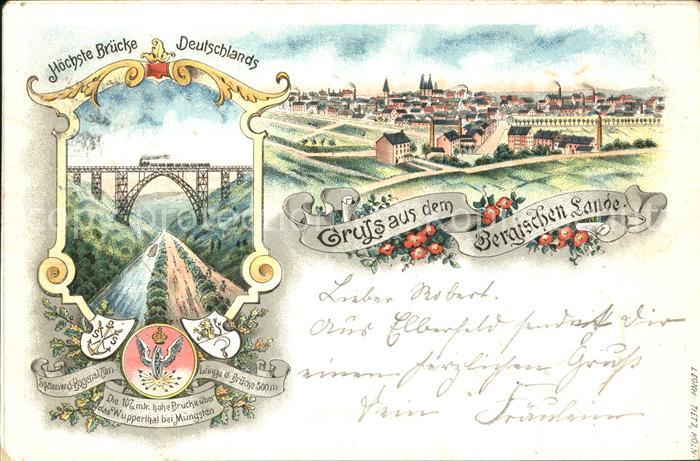 Höchste Brücke Deutschlands
Gruss aus dem Bergischen Lande.
Spannw. d. Bogens 170m
Länge d. Brücke 500 m
Die 107 mtr. hohe Brücke über
das Wupperthal bei Müngsten
Lieber Robert.
Aus Elberfeld sendet Dir
einen herzlichen Gruß
Dein Fräulein